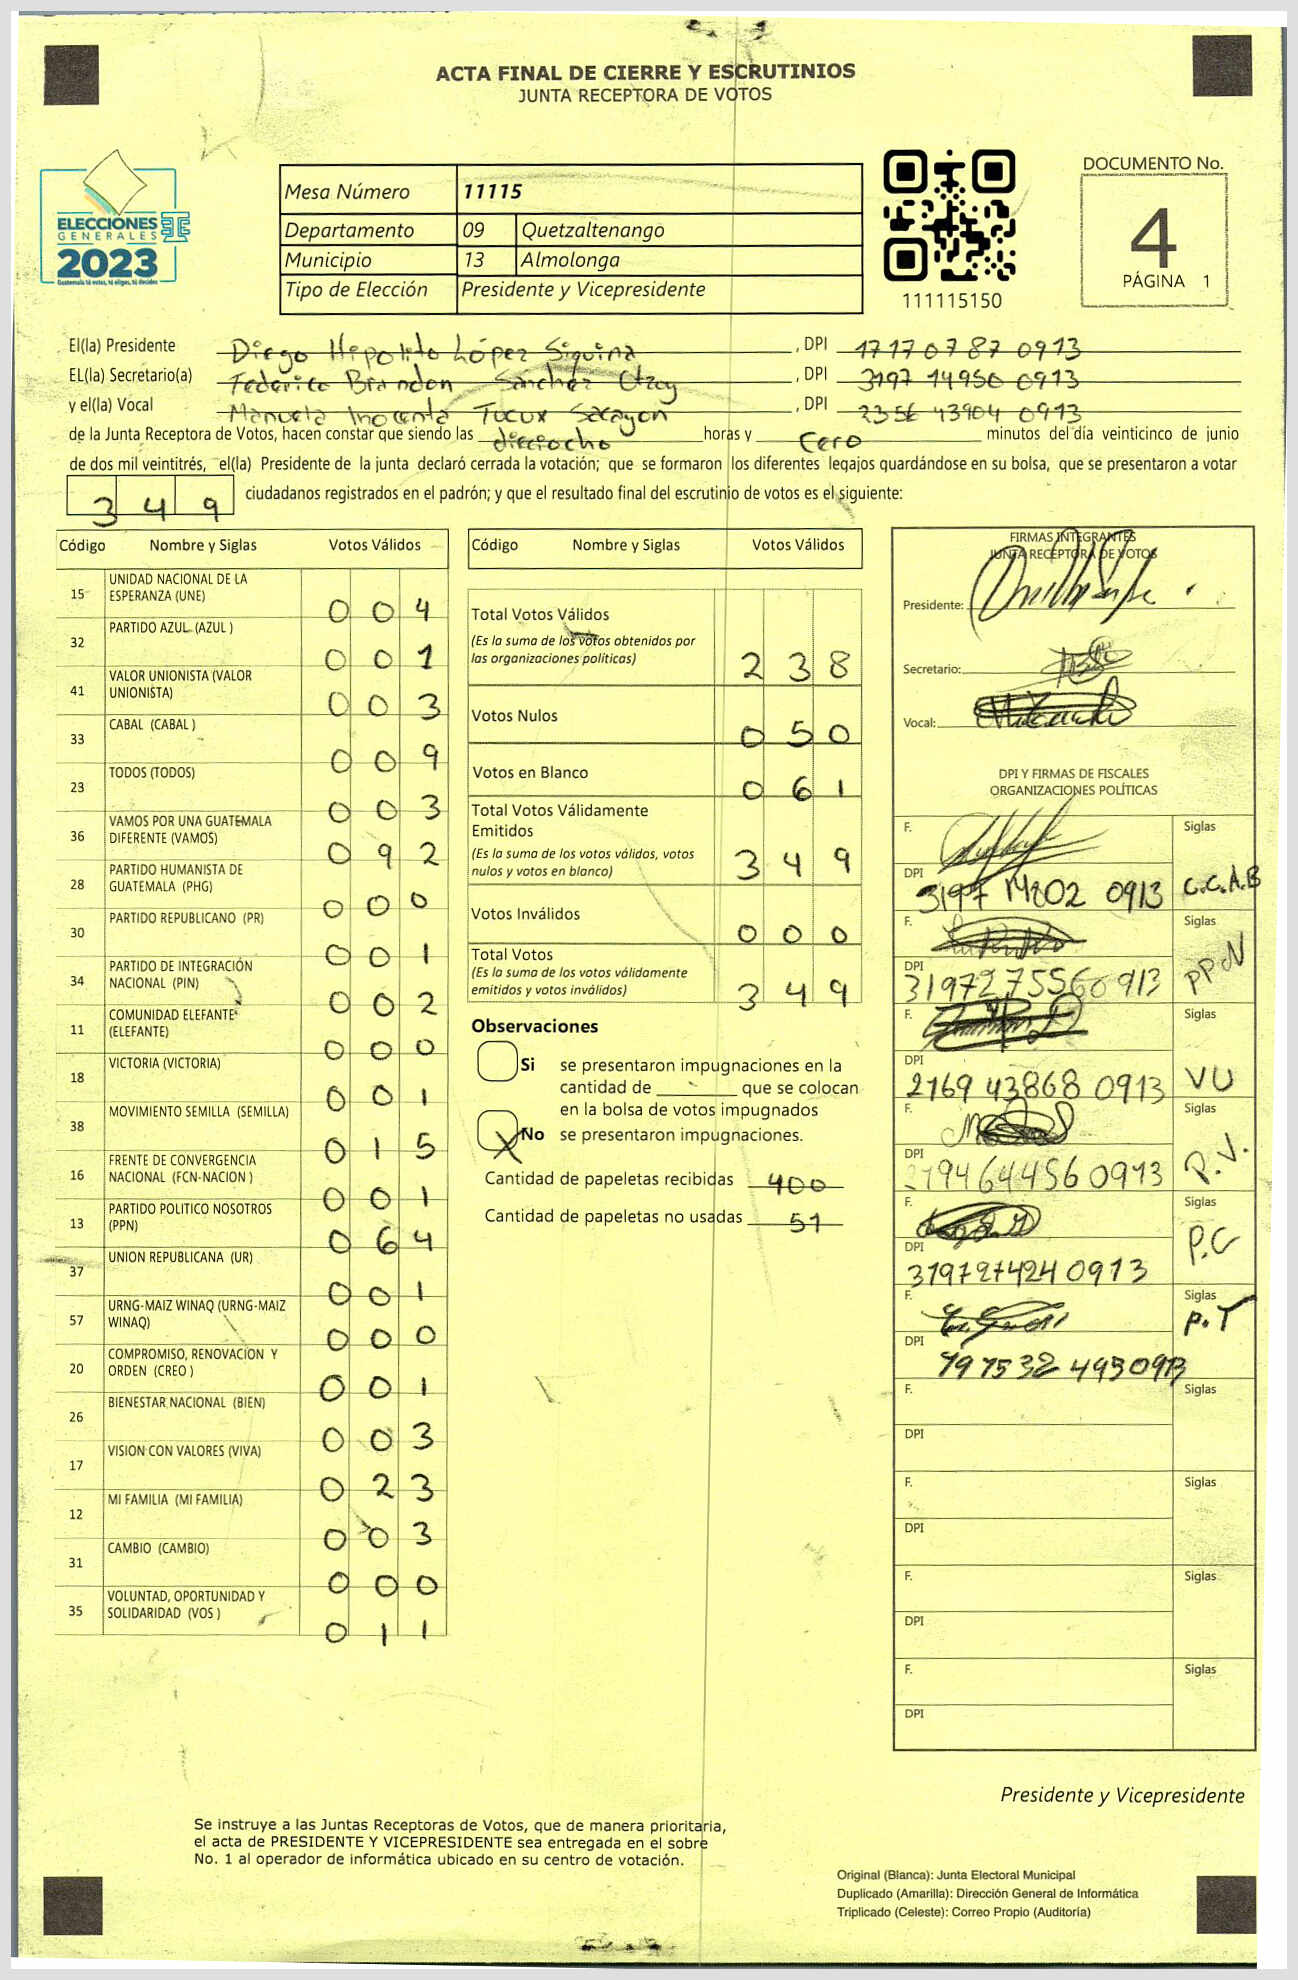 ACTA FINAL DE CIERRE Y ESCRUTINIOS
JUNTA RECEPTORA DE VOTOS
ELECCIONES
GENERALES
2023
Guatemala tú votas, tú eliges, tú decides
Mesa Número 11115
Departamento 09 Quetzaltenango
Municipio 13 Almolonga
Tipo de Elección Presidente y Vicepresidente
111115150
DOCUMENTO No.
4
PÁGINA 1
El(la) Presidente Diego Hipolito López Siquina , DPI 17170787 0913
EL(la) Secretario(a) Federico Brandon Sanchez Otzoy , DPI 3197 14950 0913
y el(la) Vocal Manuela Inocenta Tucux Sacayon , DPI 2356 43904 0913
de la Junta Receptora de Votos, hacen constar que siendo las dieciocho horas y cero minutos del día veinticinco de junio
de dos mil veintitrés, el(la) Presidente de la junta declaró cerrada la votación; que se formaron los diferentes legajos guardándose en su bolsa, que se presentaron a votar
349 ciudadanos registrados en el padrón; y que el resultado final del escrutinio de votos es el siguiente:
Código Nombre y Siglas Votos Válidos
15 UNIDAD NACIONAL DE LA ESPERANZA (UNE) 004
32 PARTIDO AZUL (AZUL ) 001
41 VALOR UNIONISTA (VALOR UNIONISTA) 003
33 CABAL (CABAL ) 009
23 TODOS (TODOS) 003
36 VAMOS POR UNA GUATEMALA DIFERENTE (VAMOS) 092
28 PARTIDO HUMANISTA DE GUATEMALA (PHG) 000
30 PARTIDO REPUBLICANO (PR) 001
34 PARTIDO DE INTEGRACIÓN NACIONAL (PIN) 002
11 COMUNIDAD ELEFANTE (ELEFANTE) 000
18 VICTORIA (VICTORIA) 001
38 MOVIMIENTO SEMILLA (SEMILLA) 015
16 FRENTE DE CONVERGENCIA NACIONAL (FCN-NACION ) 001
13 PARTIDO POLITICO NOSOTROS (PPN) 064
37 UNION REPUBLICANA (UR) 001
57 URNG-MAIZ WINAQ (URNG-MAIZ WINAQ) 000
20 COMPROMISO, RENOVACION Y ORDEN (CREO ) 001
26 BIENESTAR NACIONAL (BIEN) 003
17 VISION CON VALORES (VIVA) 023
12 MI FAMILIA (MI FAMILIA) 003
31 CAMBIO (CAMBIO) 000
35 VOLUNTAD, OPORTUNIDAD Y SOLIDARIDAD (VOS ) 011
Código Nombre y Siglas Votos Válidos
Total Votos Válidos
(Es la suma de los votos obtenidos por
las organizaciones políticas) 238
Votos Nulos 050
Votos en Blanco 061
Total Votos Válidamente
Emitidos
(Es la suma de los votos válidos, votos
nulos y votos en blanco) 349
Votos Inválidos 000
Total Votos
(Es la suma de los votos válidamente
emitidos y votos inválidos) 349
Observaciones
Si se presentaron impugnaciones en la
cantidad de ________ que se colocan
en la bolsa de votos impugnados
X No se presentaron impugnaciones.
Cantidad de papeletas recibidas 400
Cantidad de papeletas no usadas 51
FIRMAS INTEGRANTES
JUNTA RECEPTORA DE VOTOS
Presidente:
Secretario:
Vocal:
DPI Y FIRMAS DE FISCALES
ORGANIZACIONES POLÍTICAS
F. Siglas
DPI 0913 C.C.A.B
F. Siglas
DPI 3197275560913 PPN
F. Siglas
DPI 2169 43868 0913 VU
F. Siglas
DPI 2194644560913 P.V.
F. Siglas
DPI 3197274240913 P.C
F. Siglas
DPI P.T
F. Siglas
DPI
F. Siglas
DPI
F. Siglas
DPI
F. Siglas
DPI
Presidente y Vicepresidente
Se instruye a las Juntas Receptoras de Votos, que de manera prioritaria,
el acta de PRESIDENTE Y VICEPRESIDENTE sea entregada en el sobre
No. 1 al operador de informática ubicado en su centro de votación.
Original (Blanca): Junta Electoral Municipal
Duplicado (Amarilla): Dirección General de Informática
Triplicado (Celeste): Correo Propio (Auditoría)